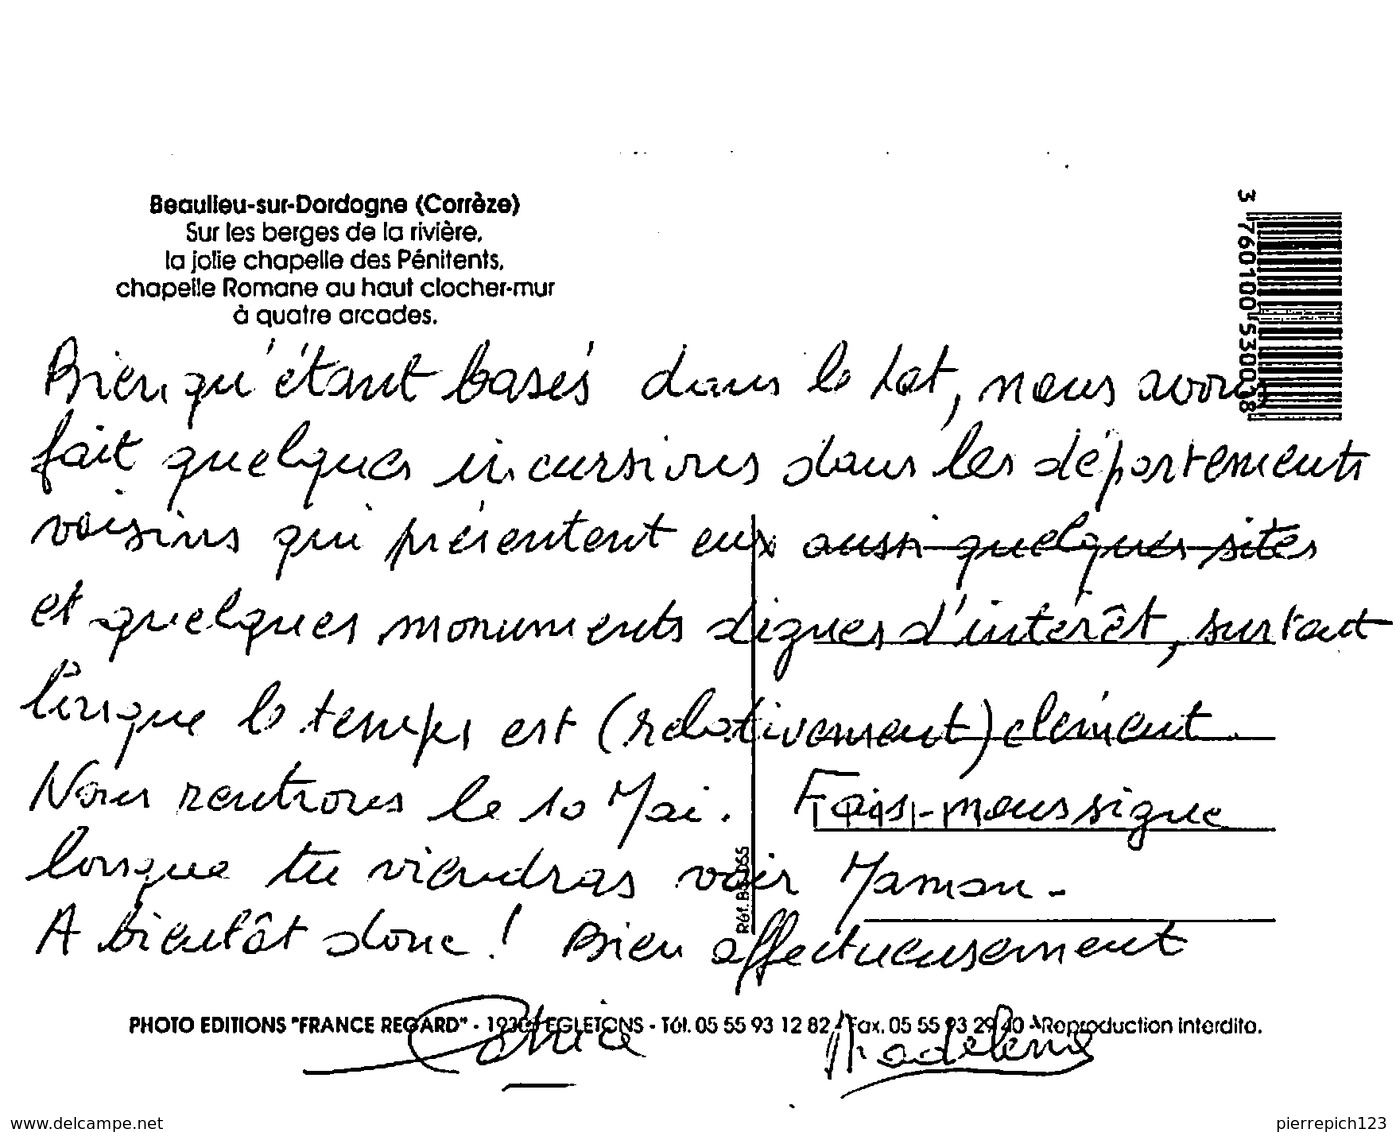 Beaulieu-sur-Dordogne (Corrèze)
Sur les berges de la rivière,
la jolie chapelle des Pénitents,
chapelle Romane au haut clocher-mur
à quatre arcades.
3 760100 530038
Bien qu'étant basés dans le Lot, nous avons
fait quelques incursions dans les départements
voisins qui présentent eux aussi quelques sites
et quelques monuments dignes d'intérêt, surtout
lorsque le temps est (relativement) clément.
Nous rentrons le 10 Mai. Fais-nous signe
lorsque tu viendras voir Maman -
A bientôt donc ! Bien affectueusement
Patrice Madeleine
PHOTO EDITIONS "FRANCE REGARD" - 19300 EGLETONS - Tél. 05 55 93 12 82 - Fax. 05 55 93 29 40 - Reproduction interdite.
www.delcampe.net
pierrepich123